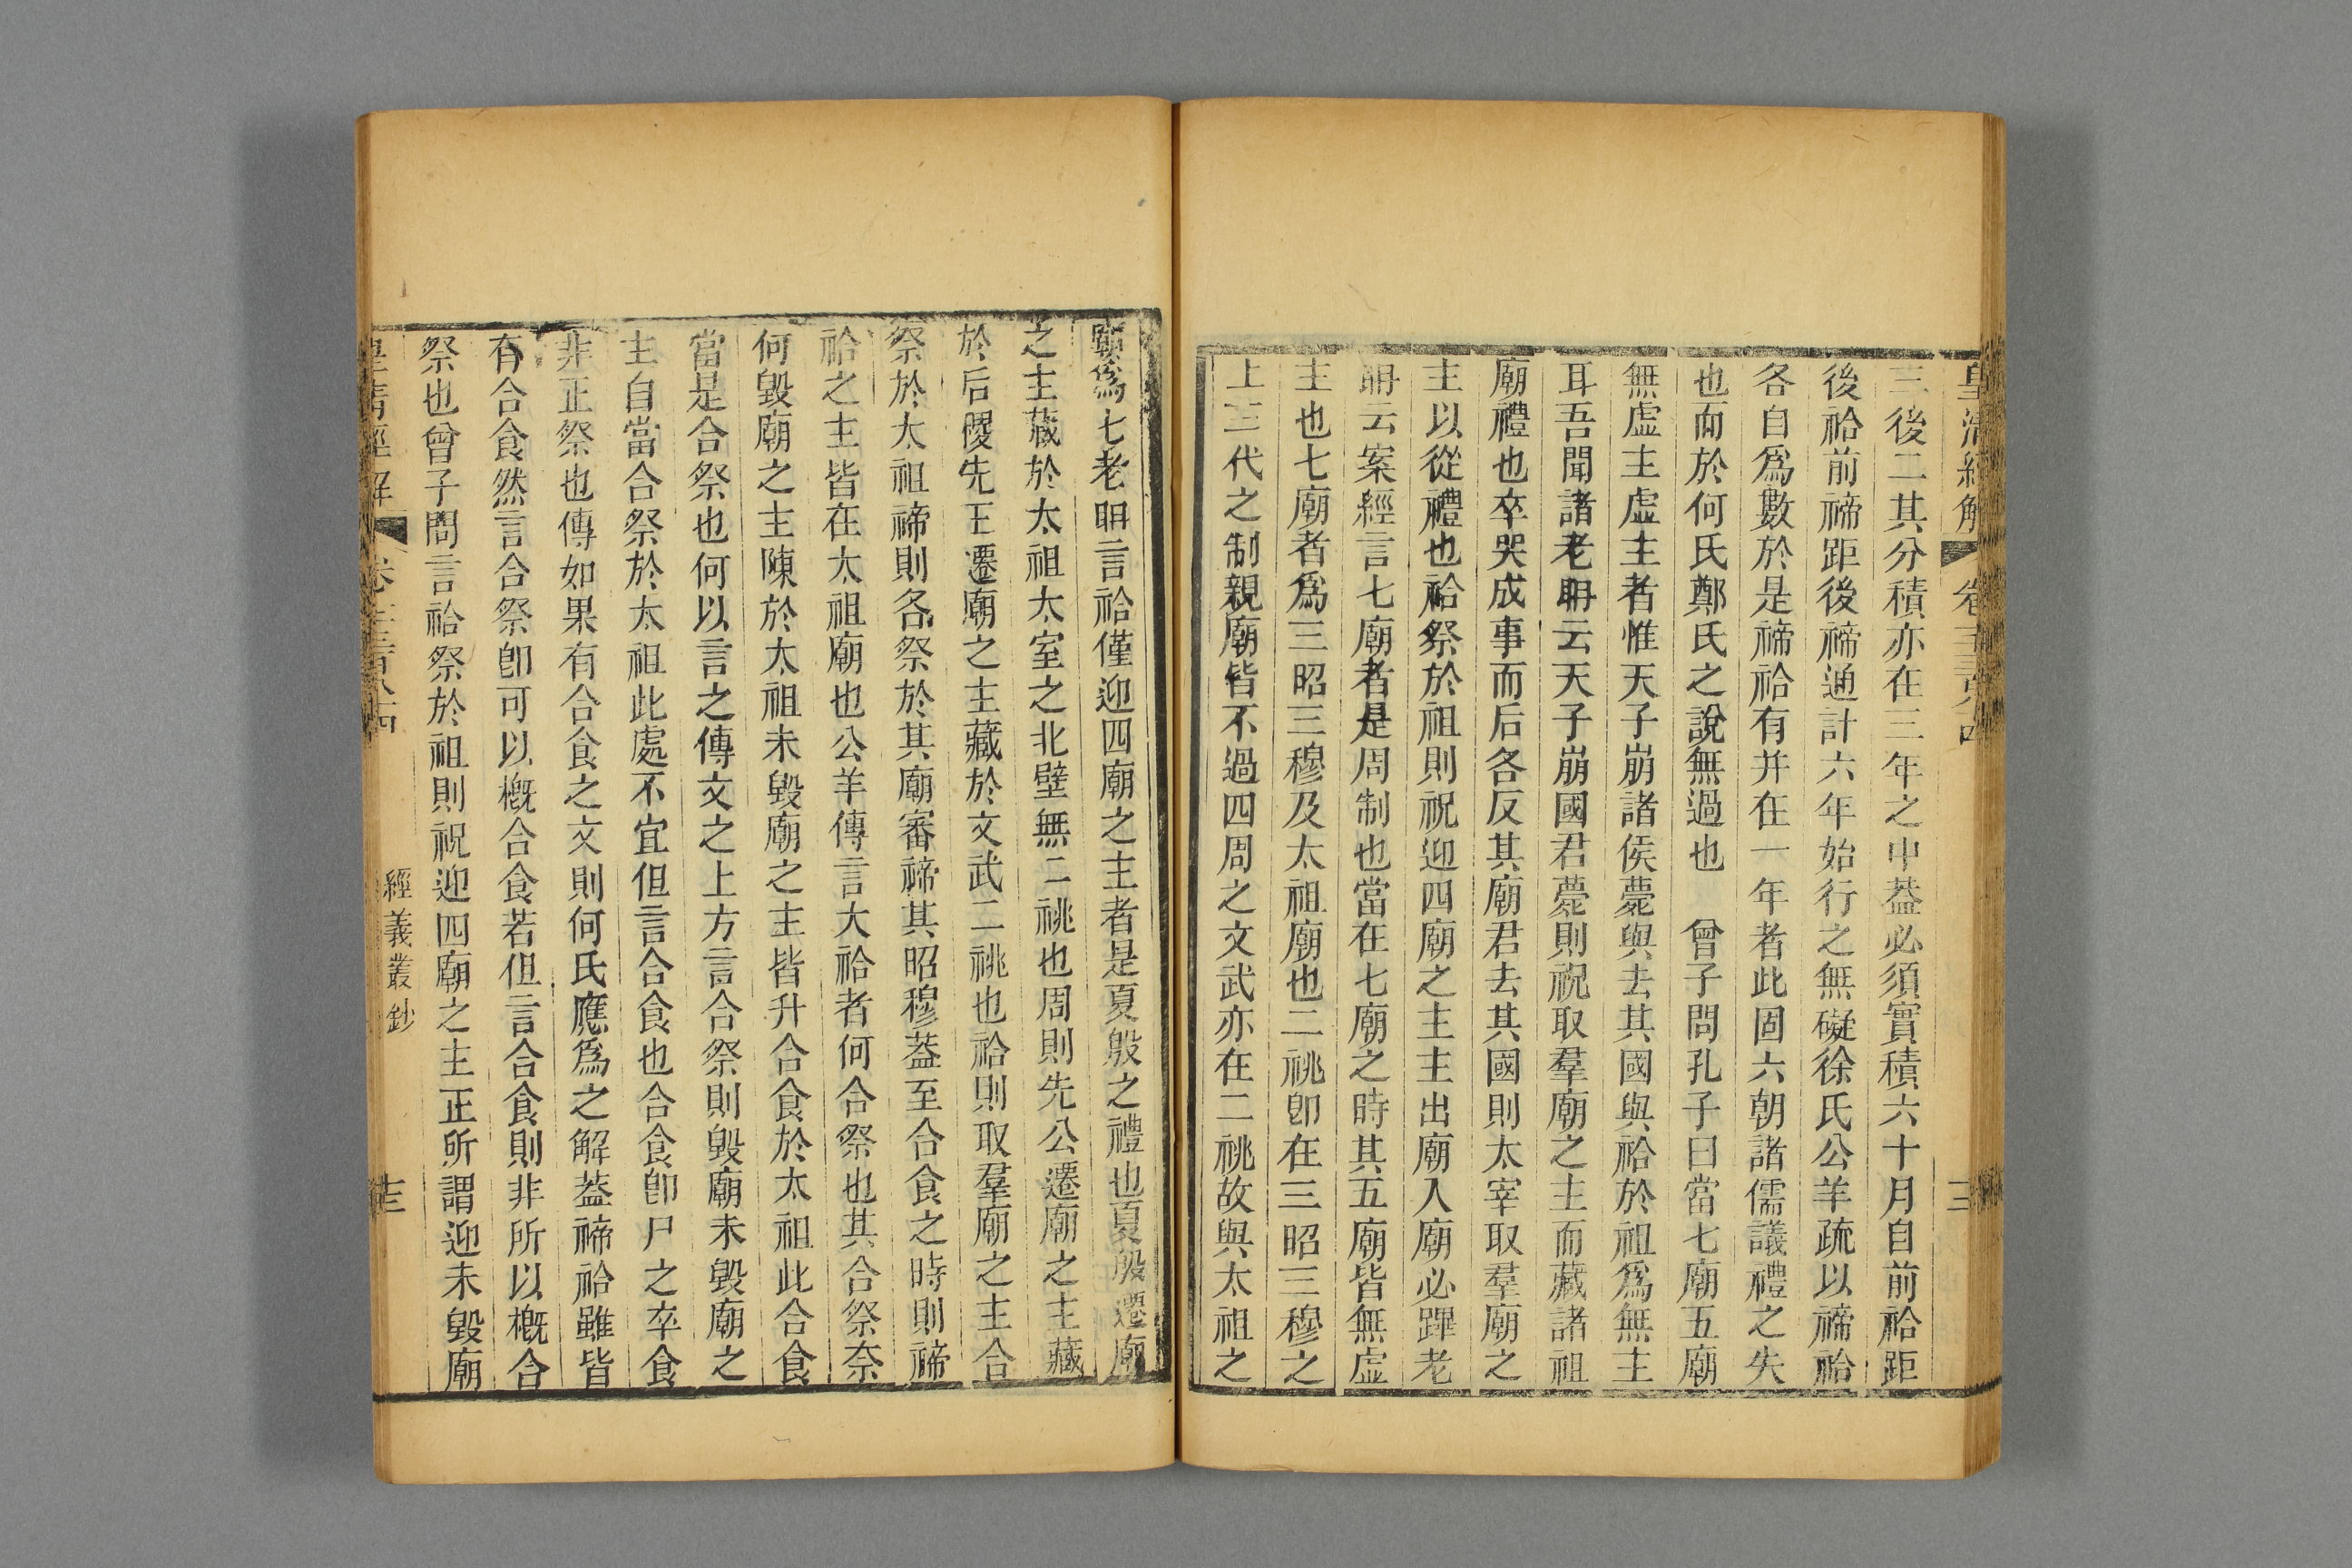 皇清經解 卷
三後二其分積亦在三年之中葢必須實積六十月自前祫距
後祫前禘距後禘通計六年始行之無礙徐氏公羊疏以禘祫
各自爲數於是禘祫有并在一年者此固六朝諸儒議禮之失
也而於何氏鄭氏之說無過也 曾子問孔子曰當七廟五廟
無虛主虛主者惟天子崩諸侯薨與去其國與祫於祖爲無主
耳吾聞諸老耼云天子崩國君薨則祝取羣廟之主而藏諸祖
廟禮也卒哭成事而后各反其廟君去其國則太宰取羣廟之
主以從禮也祫祭於祖則祝迎四廟之主主出廟入廟必蹕老
耼云案經言七廟者是周制也當在七廟之時其五廟皆無虛
主也七廟者爲三昭三穆及太祖廟也二祧卽在三昭三穆之
上三代之制親廟皆不過四周之文武亦在二祧故與太祖之
廟爲七老耼言祫僅迎四廟之主者是夏殷之禮也夏殷遷廟
之主藏於太祖太室之北壁無二祧也周則先公遷廟之主藏
於后稷先王遷廟之主藏於文武二祧也祫則取羣廟之主合
祭於太祖禘則各祭於其廟審禘其昭穆葢至合食之時則禘
祫之主皆在太祖廟也公羊傳言大祫者何合祭也其合祭奈
何毀廟之主陳於太祖未毀廟之主皆升合食於太祖此合食
當是合祭也何以言之傳文之上方言合祭則毀廟未毀廟之
主自當合祭於太祖此處不宜但言合食也合食卽尸之卒食
非正祭也傳如果有合食之文則何氏應爲之解葢禘祫雖皆
有合食然言合祭卽可以概合食若但言合食則非所以概合
祭也曾子問言祫祭於祖則祝迎四廟之主正所謂迎未毀廟
皇清經解 卷 經義叢鈔